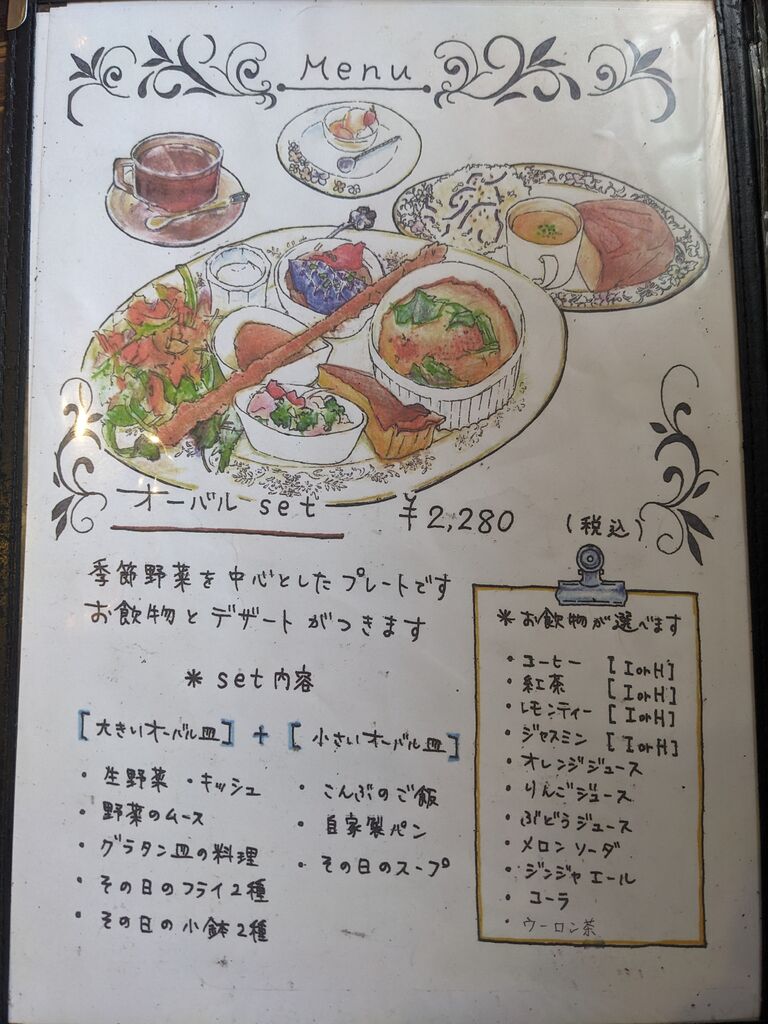 Menu
オーバル set ¥2,280 (税込)
季節野菜を中心としたプレートです
お飲物とデザートがつきます
* set内容
[大きいオーバル皿] + [小さいオーバル皿]
・生野菜 ・キッシュ
・野菜のムース
・グラタン皿の料理
・その日のフライ2種
・その日の小鉢2種
・こんぶのご飯
・自家製パン
・その日のスープ
* お飲物が選べます
・コーヒー [I or H]
・紅茶 [I or H]
・レモンティー [I or H]
・ジャスミン [I or H]
・オレンジジュース
・りんごジュース
・ぶどうジュース
・メロンソーダ
・ジンジャエール
・コーラ
・ウーロン茶